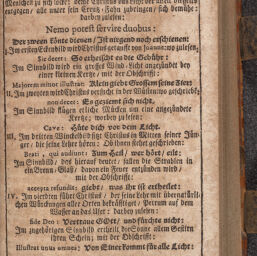 entgegen / alß unter sein Creutz-Fahn zubringen / sich bemühe:
darbey zulesen:
Nemo potest servire duobus:
Der zween könte dienen / Ist nirgend noch erschienen:
I. Im ersten Eckenbild wird Christus getaufft von Joanne: wo zulesen;
Sic decet: So erheischt es die Gebühr:
Im Sinnbild wird ein grosses Wind-Liecht angezündet bey
einer kleinen Kertze / mit der Obschrifft:
Majorem minor illustrat: Klein giebt Grossem seine Zier:
II. Im zweyten wird Christus versucht in der Wüsten: wo geschrieben;
non decet: Es geziemt sich nicht.
Im Sinnbild fliegen etliche Mücken um eine angezündete
Kertze; worbey zulesen:
Cave: Hüte dich vor dem Liecht.
III. Im dritten Winckelbild sitzt Christus in Mitten seiner Jün-
ger / die seine Lehre hören: Ob ihnen stehet geschrieben:
Beati, qui audiunt: Zum Heil / wer hört / eile:
Im Sinnbild / des hierauf deutet / fallen die Strahlen in
ein Brenn-Glaß / davon ein Feuer entzünden wird /
mit der Obschrifft:
accepta refundit: giebt / was ihr ist ertheilet:
IV. Im vierdten führt Christus / der seine Lehr mit übernatürli-
chen Würckungen aller Orten bekräfftiget / Petrum auf dem
Wasser an das Ufer: darbey zulesen:
fide Deo: Vertraue GOtt / und fürchte nicht:
Im zugehörigen Sinnbild ertheilt die Sonne allen Seiten
ihren Schein; mit der Obschrifft:
Illustrat unus omnes: Von Einer kommt für alle Liecht: